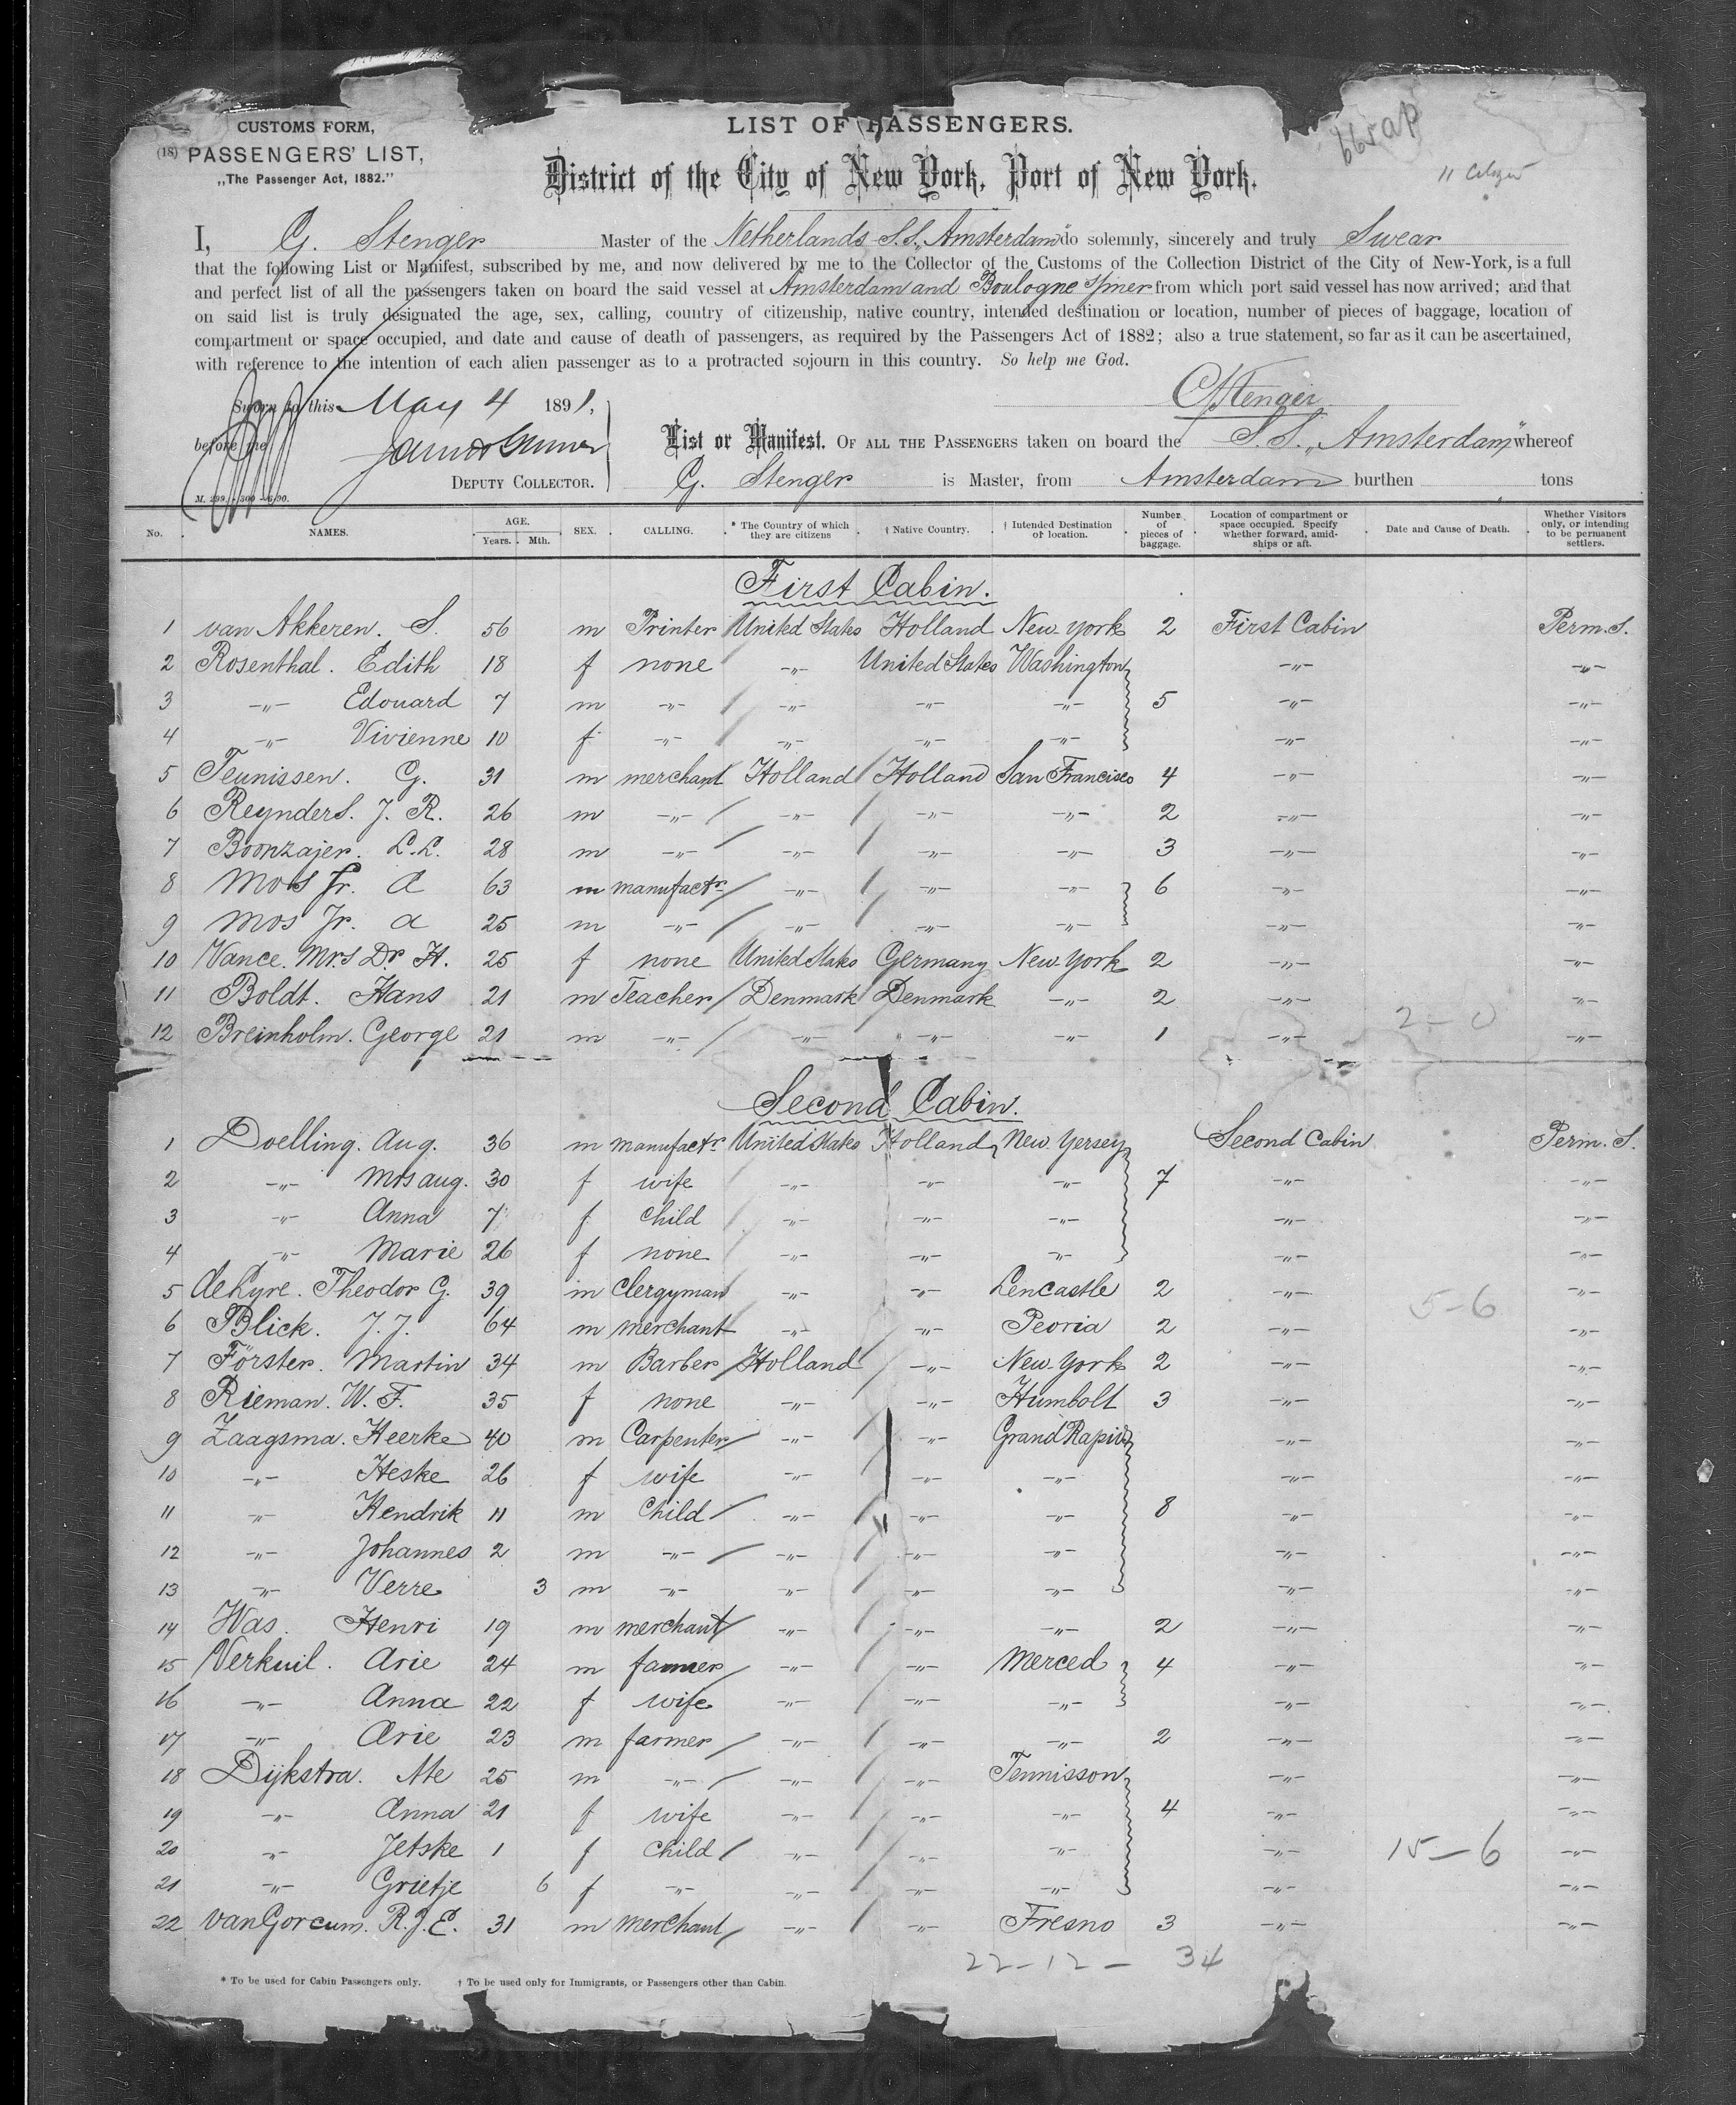 CUSTOMS FORM,
(18) PASSENGERS' LIST,
„The Passenger Act, 1882."
LIST OF PASSENGERS.
District of the City of New York, Port of New York.
11 Citizen
I, G. Stenger Master of the Netherlands S.S. „Amsterdam" do solemnly, sincerely and truly Swear
that the following List or Manifest, subscribed by me, and now delivered by me to the Collector of the Customs of the Collection District of the City of New-York, is a full
and perfect list of all the passengers taken on board the said vessel at Amsterdam and Boulogne s/mer from which port said vessel has now arrived; and that
on said list is truly designated the age, sex, calling, country of citizenship, native country, intended destination or location, number of pieces of baggage, location of
compartment or space occupied, and date and cause of death of passengers, as required by the Passengers Act of 1882; also a true statement, so far as it can be ascertained,
with reference to the intention of each alien passenger as to a protracted sojourn in this country. So help me God.
Sworn to this May 4 1891,
GStenger
before me
DEPUTY COLLECTOR.
List or Manifest. OF ALL THE PASSENGERS taken on board the S.S. „Amsterdam" whereof
G. Stenger is Master, from Amsterdam burthen tons
M. 299. - 300 - 6.90.
No. NAMES. AGE. Years. Mth. SEX. CALLING. * The Country of which they are citizens † Native Country. † Intended Destination or location. Number of pieces of baggage. Location of compartment or space occupied. Specify whether forward, amidships or aft. Date and Cause of Death. Whether Visitors only, or intending to be permanent settlers.
First Cabin.
1 van Akkeren. S. 56 m Printer United States Holland New York 2 First Cabin Perm. S.
2 Rosenthal. Edith 18 f none -"- United States Washington -"- -"-
3 -"- Edouard 7 m -"- -"- -"- -"- 5 -"- -"-
4 -"- Vivienne 10 f -"- -"- -"- -"- -"- -"-
5 Teunissen. G. 31 m merchant Holland Holland San Francisco 4 -"- -"-
6 Reynders. J. R. 26 m -"- -"- -"- -"- 2 -"- -"-
7 Boonzajer. L.L. 28 m -"- -"- -"- -"- 3 -"- -"-
8 Mos Jr. A 63 m manufactr. -"- -"- -"- 6 -"- -"-
9 Mos Jr. A 25 m -"- -"- -"- -"- -"- -"-
10 Vance. Mrs Dr. H. 25 f none United States Germany New York 2 -"- -"-
11 Boldt. Hans 21 m Teacher Denmark Denmark -"- 2 -"- -"-
2-0
12 Breinholm. George 21 m -"- -"- -"- -"- 1 -"- -"-
Second Cabin.
1 Doelling. Aug. 36 m manufactr. United States Holland New Yersey Second Cabin Perm. S.
2 -"- Mrs Aug. 30 f wife -"- -"- -"- 7 -"- -"-
3 -"- Anna 7 f child -"- -"- -"- -"- -"-
4 -"- Marie 26 f none -"- -"- -"- -"- -"-
5 de Kyre. Theodor G. 39 m Clergyman -"- -"- Lencastle 2 -"- -"-
5-6
6 Blick. J. J. 64 m merchant -"- -"- Peoria 2 -"- -"-
7 Förster. Martin 34 m Barber Holland -"- New York 2 -"- -"-
8 Rieman. W. F. 35 f none -"- -"- Humbolt 3 -"- -"-
9 Zaagsma. Heerke 40 m Carpenter -"- -"- Grand Rapids -"- -"-
10 -"- Heske 26 f wife -"- -"- -"- -"- -"-
11 -"- Hendrik 11 m Child -"- -"- -"- 8 -"- -"-
12 -"- Johannes 2 m -"- -"- -"- -"- -"- -"-
13 -"- Verre 3 m -"- -"- -"- -"- -"- -"-
14 Was. Henri 19 m merchant -"- -"- -"- 2 -"- -"-
15 Verkuil. Arie 24 m farmer -"- -"- Merced 4 -"- -"-
16 -"- Anna 22 f wife -"- -"- -"- -"- -"-
17 -"- Arie 23 m farmer -"- -"- -"- 2 -"- -"-
18 Dijkstra. Ate 25 m -"- -"- -"- Tennisson -"- -"-
19 -"- Anna 21 f wife -"- -"- -"- 4 -"- -"-
20 -"- Jetske 1 f Child -"- -"- -"- -"- 15-6 -"-
21 -"- Grietje 6 f -"- -"- -"- -"- -"- -"-
22 van Gorcum. R.J.E. 31 m merchant -"- -"- Fresno 3 -"- -"-
22-12- 34
* To be used for Cabin Passengers only. † To be used only for Immigrants, or Passengers other than Cabin.